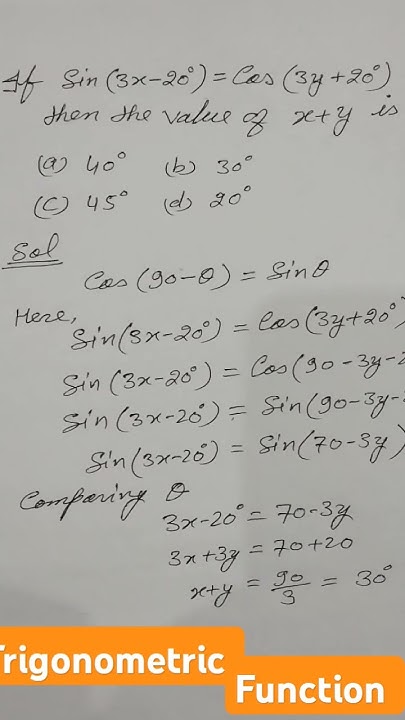 If Sin(3x-20°) = Cos(3y+20°)
then the value of x+y is
(a) 40° (b) 30°
(c) 45° (d) 20°
Sol
Cos(90-θ) = Sinθ
Here,
Sin(3x-20°) = Cos(3y+20°)
Sin(3x-20°) = Cos(90-3y-2
Sin(3x-20°) = Sin(90-3y-
Sin(3x-20°) = Sin(70-3y)
Comparing θ
3x-20° = 70-3y
3x+3y = 70+20
x+y = 90/3 = 30°
Trigonometric
Function